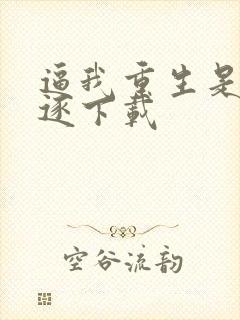 逼我重生是
逐下载
空谷流韵